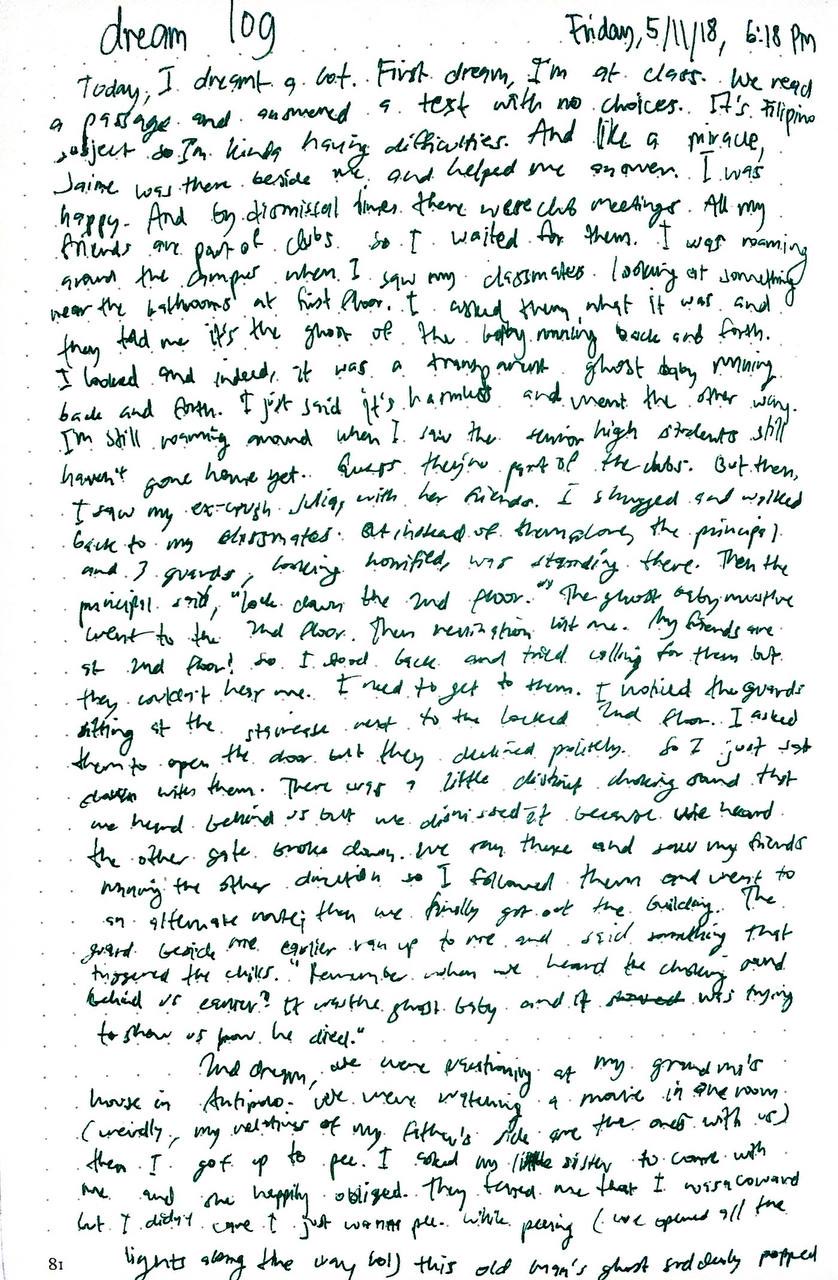 dream log
Friday, 5/11/18, 6:18 PM
Today, I dreamt a lot. First dream, I'm at class. We read
a passage and answered a test with no choices. It's Filipino
subject so I'm kinda having difficulties. And like a miracle,
Jaime was there beside me and helped me answer. I was
happy. And by dismissal times there were club meetings. All my
friends are part of clubs so I waited for them. I was roaming
around the campus when I saw my classmates looking at something
near the bathrooms at first floor. I asked them what it was and
they told me it's the ghost of the baby running back and forth.
I looked and indeed, it was a transparent ghost baby running
back and forth. I just said it's harmless and went the other way.
I'm still roaming around when I saw the senior high students still
haven't gone home yet. Guess they're part of the clubs. But then,
I saw my ex-crush Julia, with her friends. I shrugged and walked
back to my classmates. But instead of them, the principal
and 3 guards, looking horrified, was standing there. Then the
principal said, "lock down the 2nd floor." The ghost baby must've
went to the 2nd floor. Then realization hit me. My friends are
at 2nd floor! So I stood back and tried calling for them but
they couldn't hear me. I need to get to them. I noticed the guards
sitting at the staircase next to the locked 2nd floor. I asked
them to open the door but they declined politely. So I just sat
down with them. There was a little distinct choking sound that
we heard behind us but we dismissed it because we heard
the other gate broke down. We ran there and saw my friends
running the other direction so I followed them and went to
an alternate route; then we finally got out the building. The
guard beside me earlier ran up to me and said something that
triggered the chills. "Remember when we heard the choking sound
behind us earlier? It was the ghost baby and it was trying
to show us how he died."
2nd dream, we were vacationing at my grandma's
house in Antipolo. We were watching a movie in one room
(weirdly, my relatives of my father's side are the ones with us)
then I got up to pee. I asked my little sister to come with
me and she happily obliged. They teased me that I was a coward
but I didn't care I just wanna pee. While peeing (we opened all the
81
lights along the way lol) this old man's ghost suddenly popped